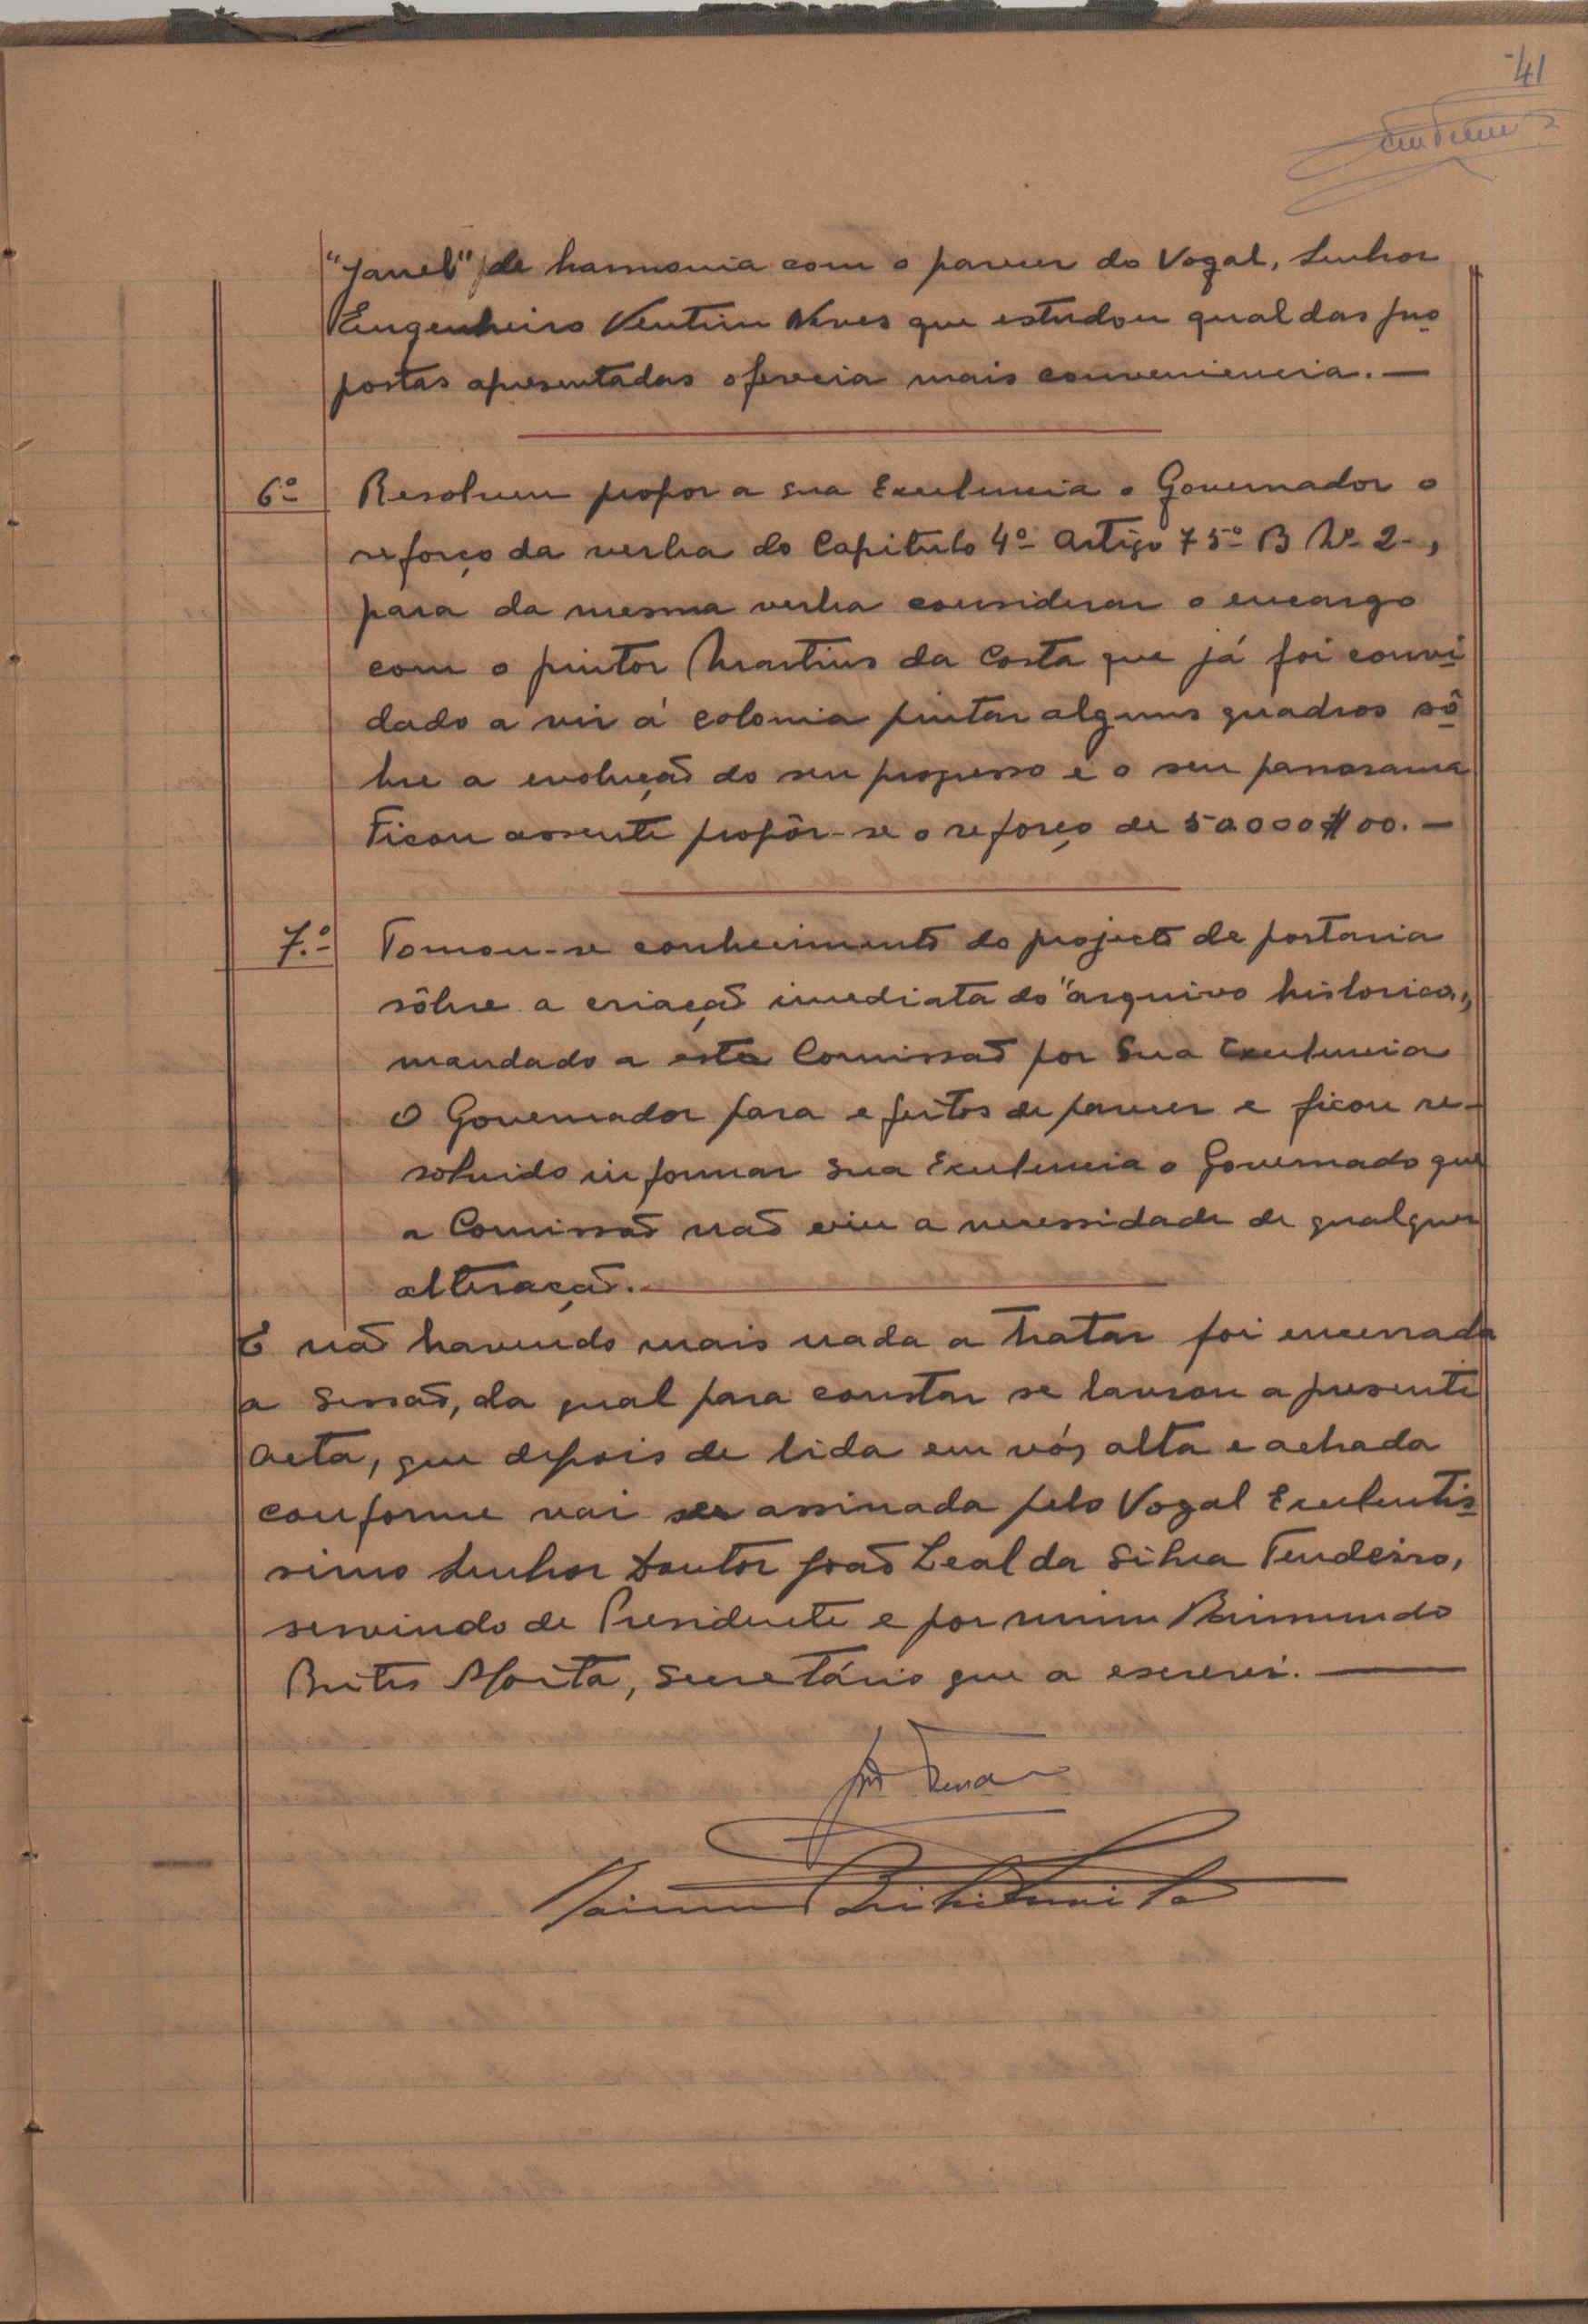 41
"Janel" de harmonia com o parecer do Vogal, Senhor
Engenheiro Ventim Neves que estudou qual das pro
postas apresentadas oferecia mais conveniencia. —
6º Resolveu propor a sua Excelencia o Governador o
reforço da verba do Capitulo 4º Artigo 75º B Nº 2-,
para da mesma verba considerar o encargo
com o pintor Martins da Costa que já foi convi
dado a vir á colonia pintar alguns quadros sô
bre a evolução do seu progresso e o seu panorama
Ficou assente propôr-se o reforço de 50.000$00. —
7.º Tomou-se conhecimento do projecto de portaria
sôbre a criação imediata do "arquivo historico",
mandado a esta Comissão por Sua Excelencia
O Governador para efeitos de parecer e ficou re-
solvido informar Sua Excelencia o Governado que
a Comissão não viu a necessidade de qualquer
alteração.
E não havendo mais nada a tratar foi encerrada
a Sessão, da qual para constar se lavrou a presente
acta, que depois de lida em vós alta e achada
conforme vai ser assinada pelo Vogal Excelentis
simo Senhor Doutor João Leal da Silva Tendeiro,
servindo de Presidente e por mim Raimundo
Brites Moita, Secretário que a escrevi. —